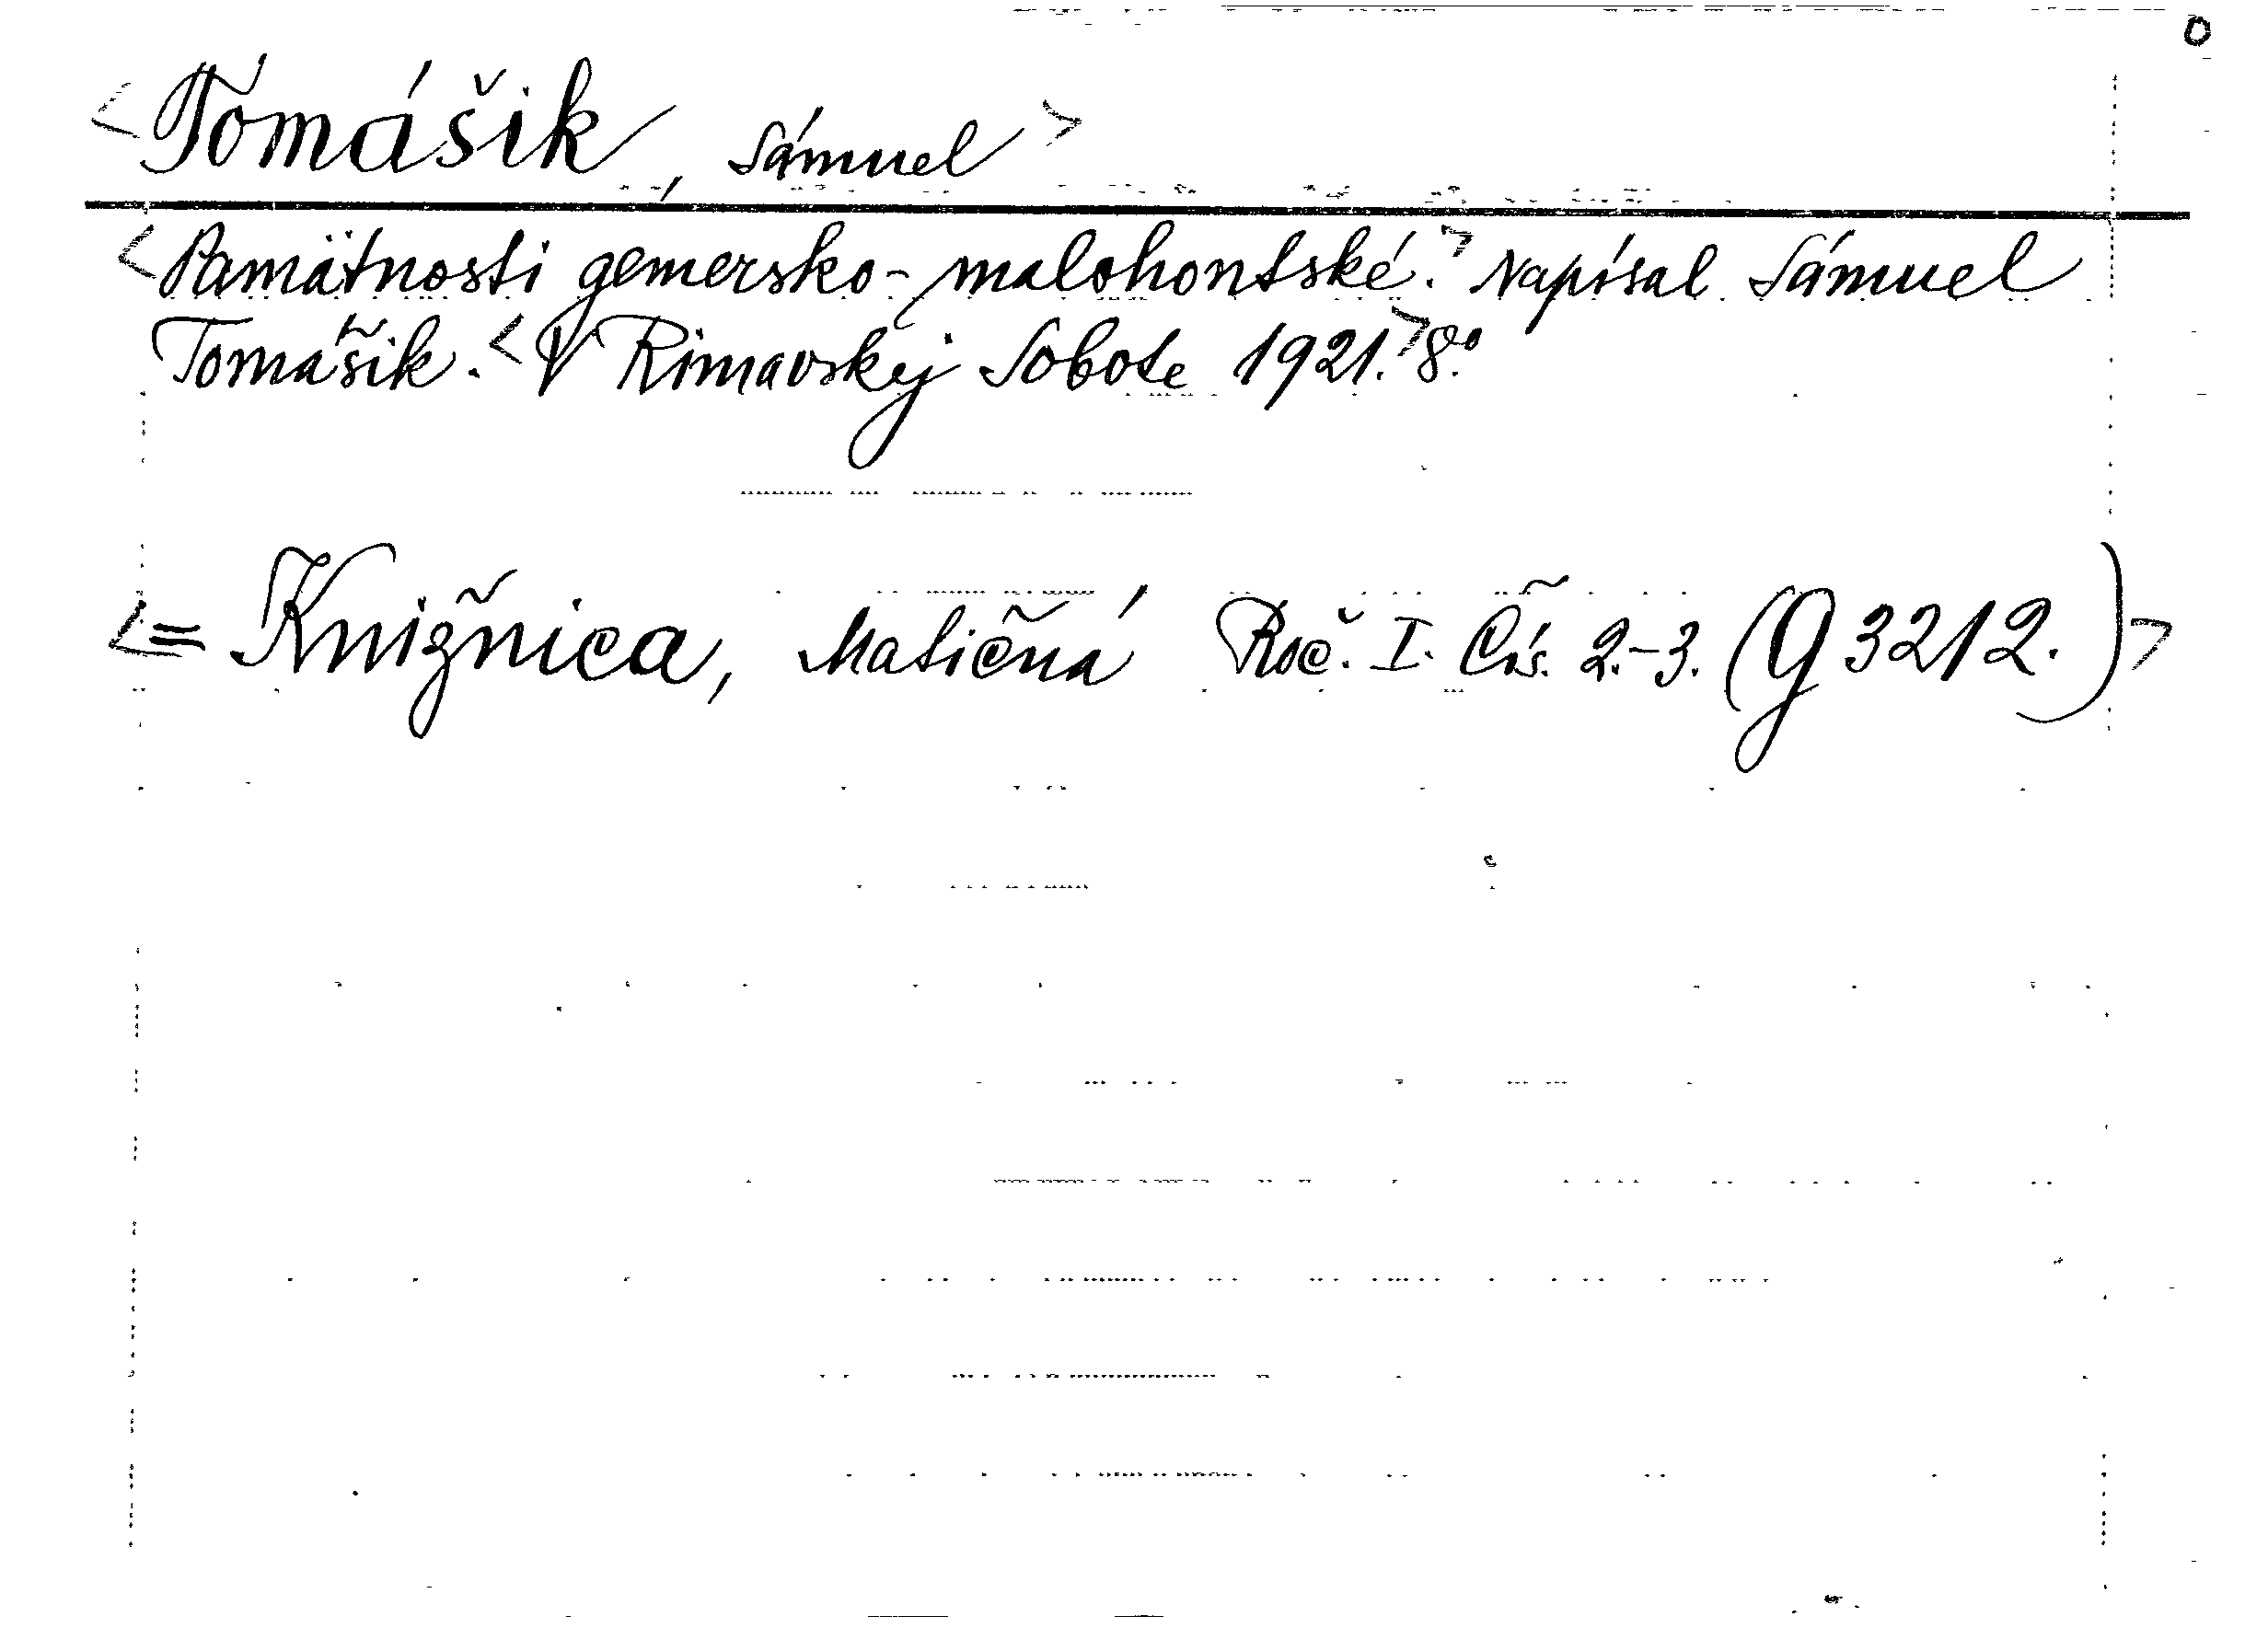 <Tomášik, Sámuel>
<Pamätnosti gemersko-malohontské.> Napísal Sámuel
Tomášik. <V Rimavskej Sobote 1921.> 8.º
<= Knižnica, Matičná Roč. I. Čís. 2.-3. (G 3212.)>